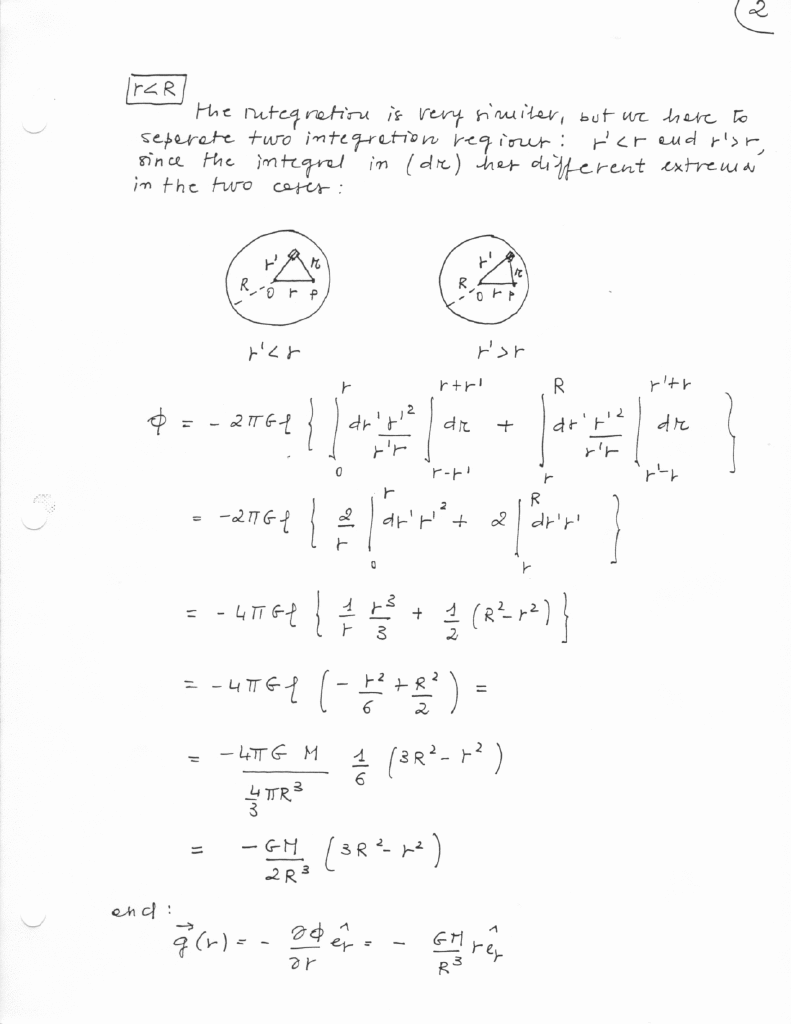 2
r<R
The integration is very similar, but we have to
separate two integration regions: r'<r and r'>r,
since the integral in (dr) has different extrema
in the two cases:
r' r R O r P
r' r R O r P
r'<r r'>r
ϕ = - 2πGρ { ∫₀^r dr' r'²/(r'r) ∫_{r-r'}^{r+r'} dr + ∫_r^R dr' r'²/(r'r) ∫_{r'-r}^{r'+r} dr }
= -2πGρ { 2/r ∫₀^r dr' r'² + 2 ∫_r^R dr' r' }
= -4πGρ { 1/r r³/3 + 1/2 (R²-r²) }
= -4πGρ (- r²/6 + R²/2) =
= -4πG M / (4/3 πR³) 1/6 (3R² - r²)
= -GM/2R³ (3R² - r²)
and:
g⃗(r) = - ∂ϕ/∂r ê_r = - GM/R³ r ê_r